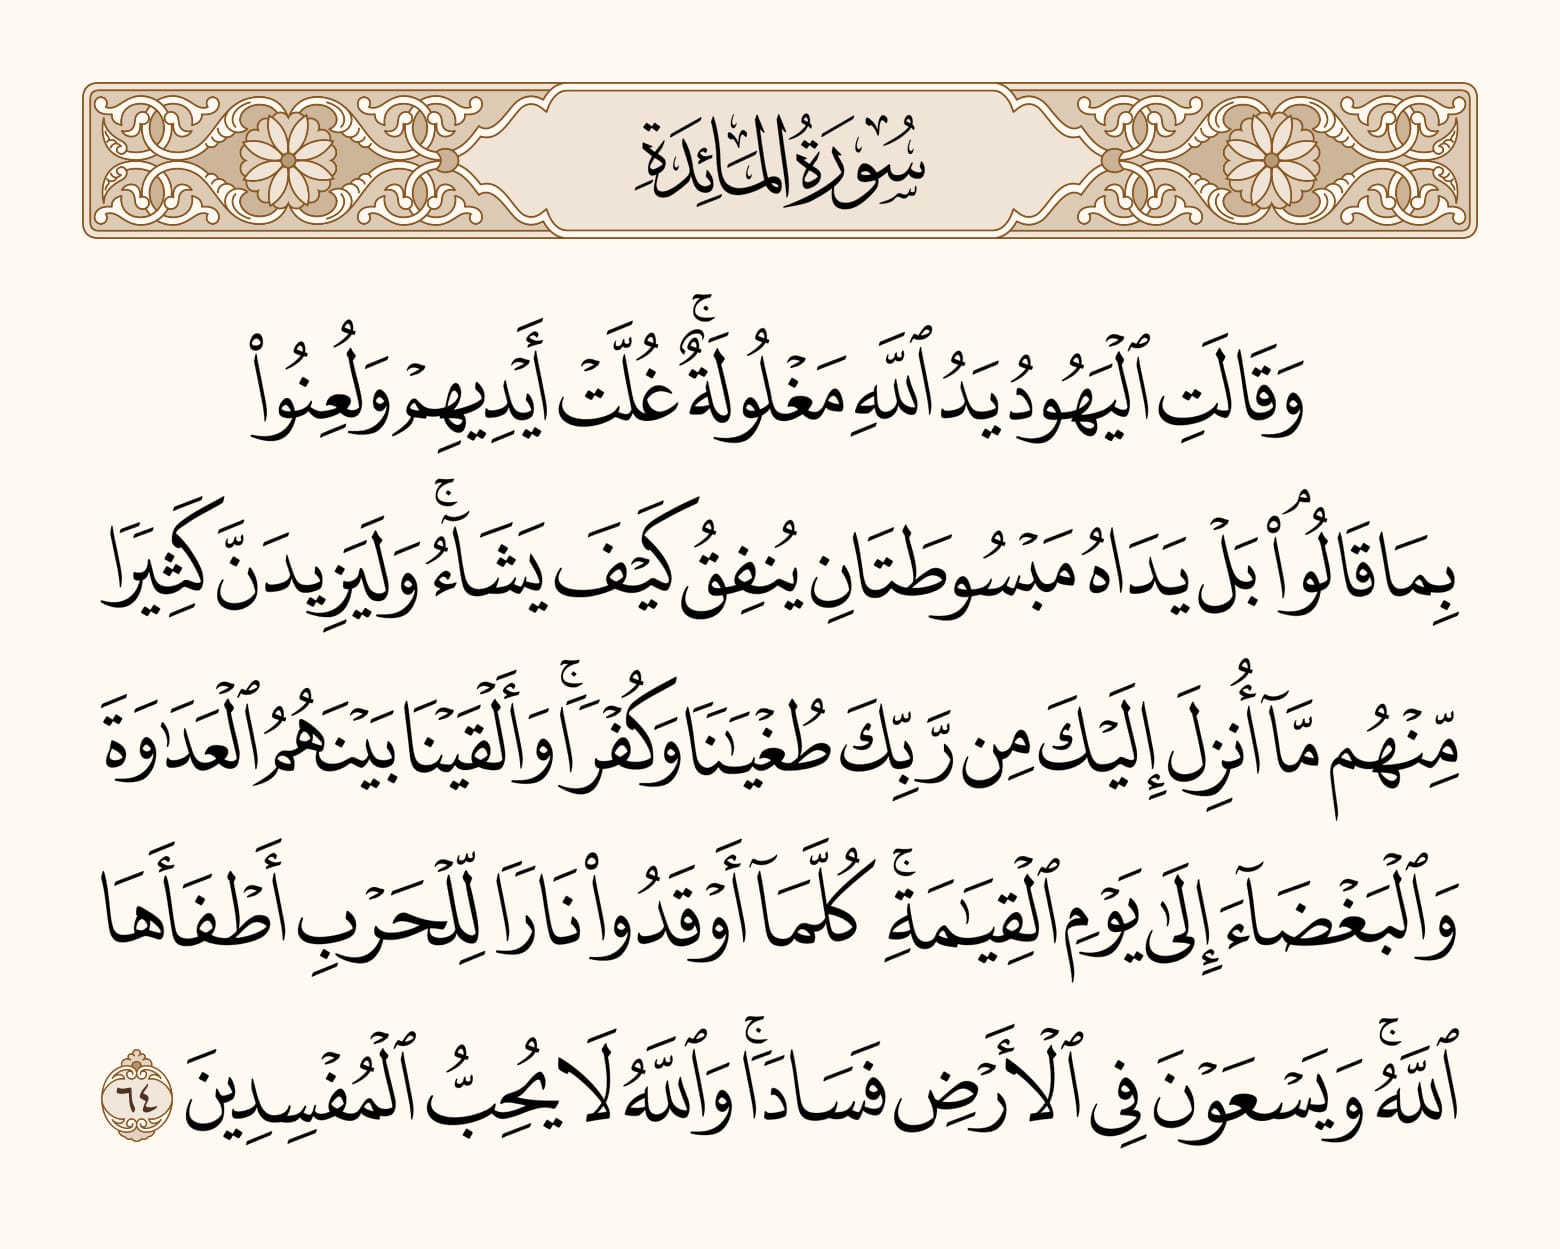 سُورَةُ المَائِدَةِ
وَقَالَتِ ٱلْيَهُودُ يَدُ ٱللَّهِ مَغْلُولَةٌۚ غُلَّتْ أَيْدِيهِمْ وَلُعِنُوا۟
بِمَا قَالُوا۟ۘ بَلْ يَدَاهُ مَبْسُوطَتَانِ يُنفِقُ كَيْفَ يَشَآءُۚ وَلَيَزِيدَنَّ كَثِيرًا
مِّنْهُم مَّآ أُنزِلَ إِلَيْكَ مِن رَّبِّكَ طُغْيَـٰنًا وَكُفْرًاۚ وَأَلْقَيْنَا بَيْنَهُمُ ٱلْعَدَٰوَةَ
وَٱلْبَغْضَآءَ إِلَىٰ يَوْمِ ٱلْقِيَـٰمَةِۚ كُلَّمَآ أَوْقَدُوا۟ نَارًا لِّلْحَرْبِ أَطْفَأَهَا
ٱللَّهُۚ وَيَسْعَوْنَ فِى ٱلْأَرْضِ فَسَادًاۚ وَٱللَّهُ لَا يُحِبُّ ٱلْمُفْسِدِينَ ٦٤